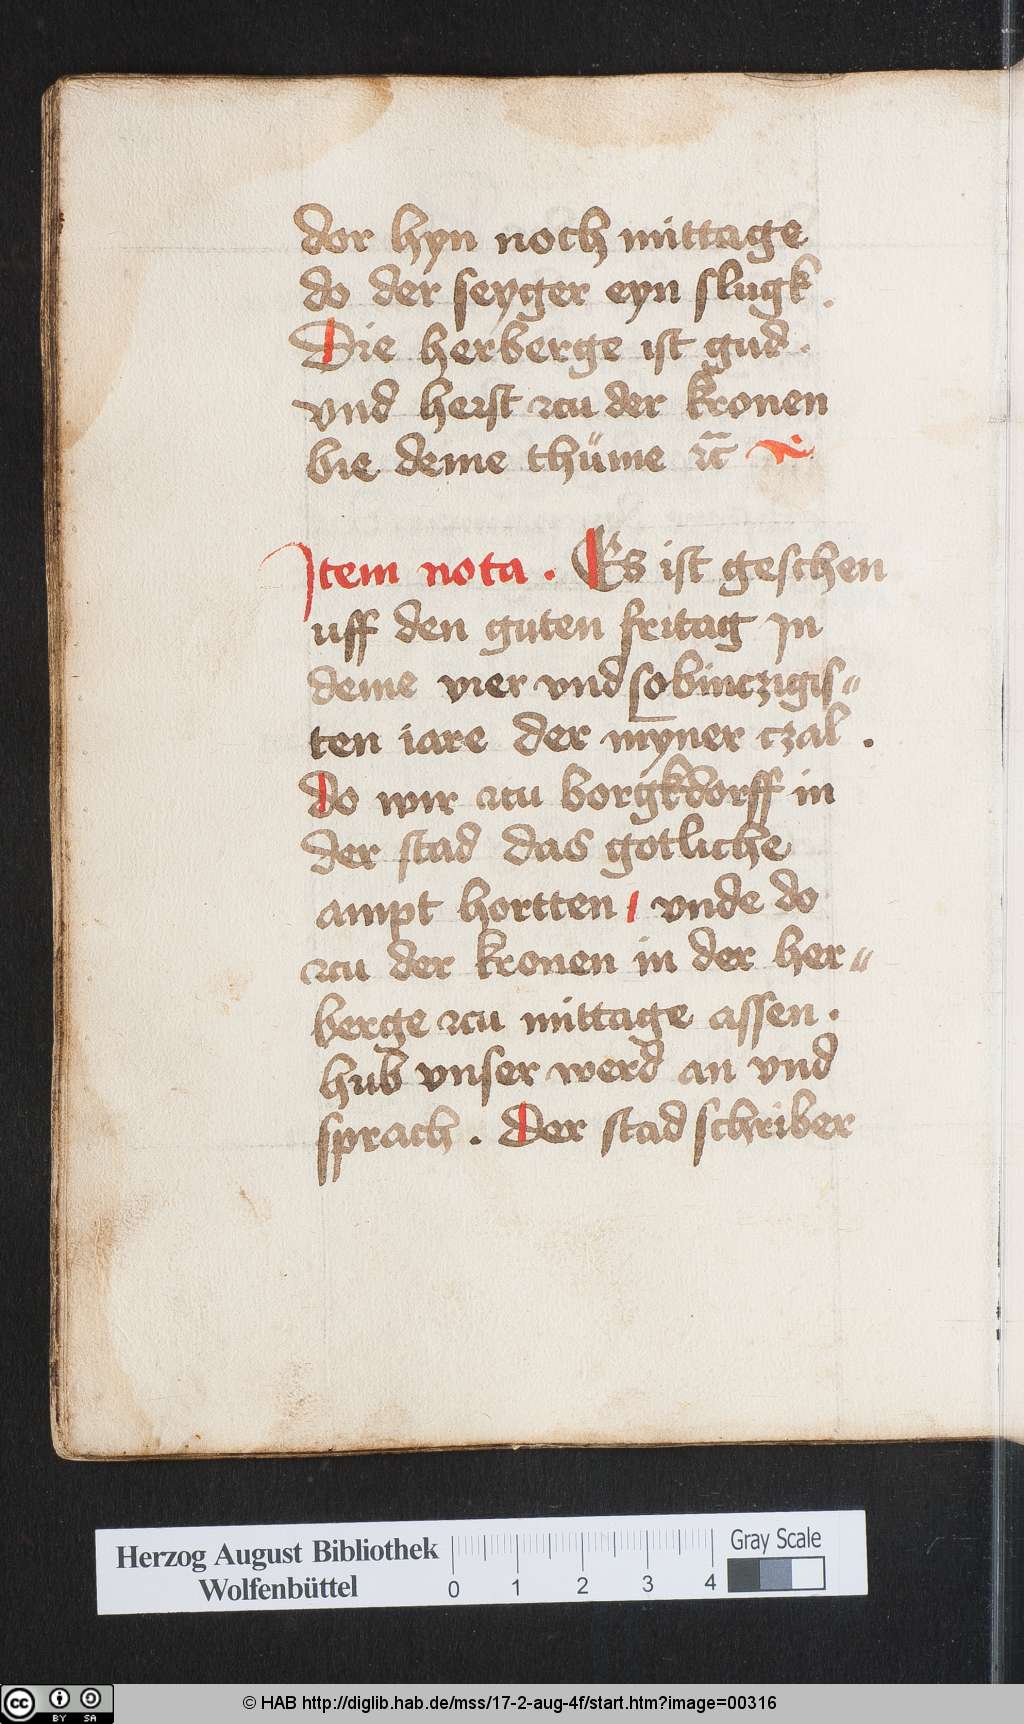 dor hyn noch mittage
do der seyger eyn slugk .
Die herberge ist gud .
vnd heist zcu der kronen
bie deme thüme ꝛc̃
Item nota . Es ist geschen
uff den guten fritag In
deme vier vnd sobinczigis-
ten iare der myner czal .
do wir zcu borgkdorff in
der stad das gotliche
ampt hortten / vnde do
zcu der kronen in der her-
berge zcu mittage assen .
hub vnser werd an vnd
sprach . Der stad schriber
Herzog August Bibliothek
Wolfenbüttel
0 1 2 3 4
Gray Scale
cc BY SA
© HAB http://diglib.hab.de/mss/17-2-aug-4f/start.htm?image=00316